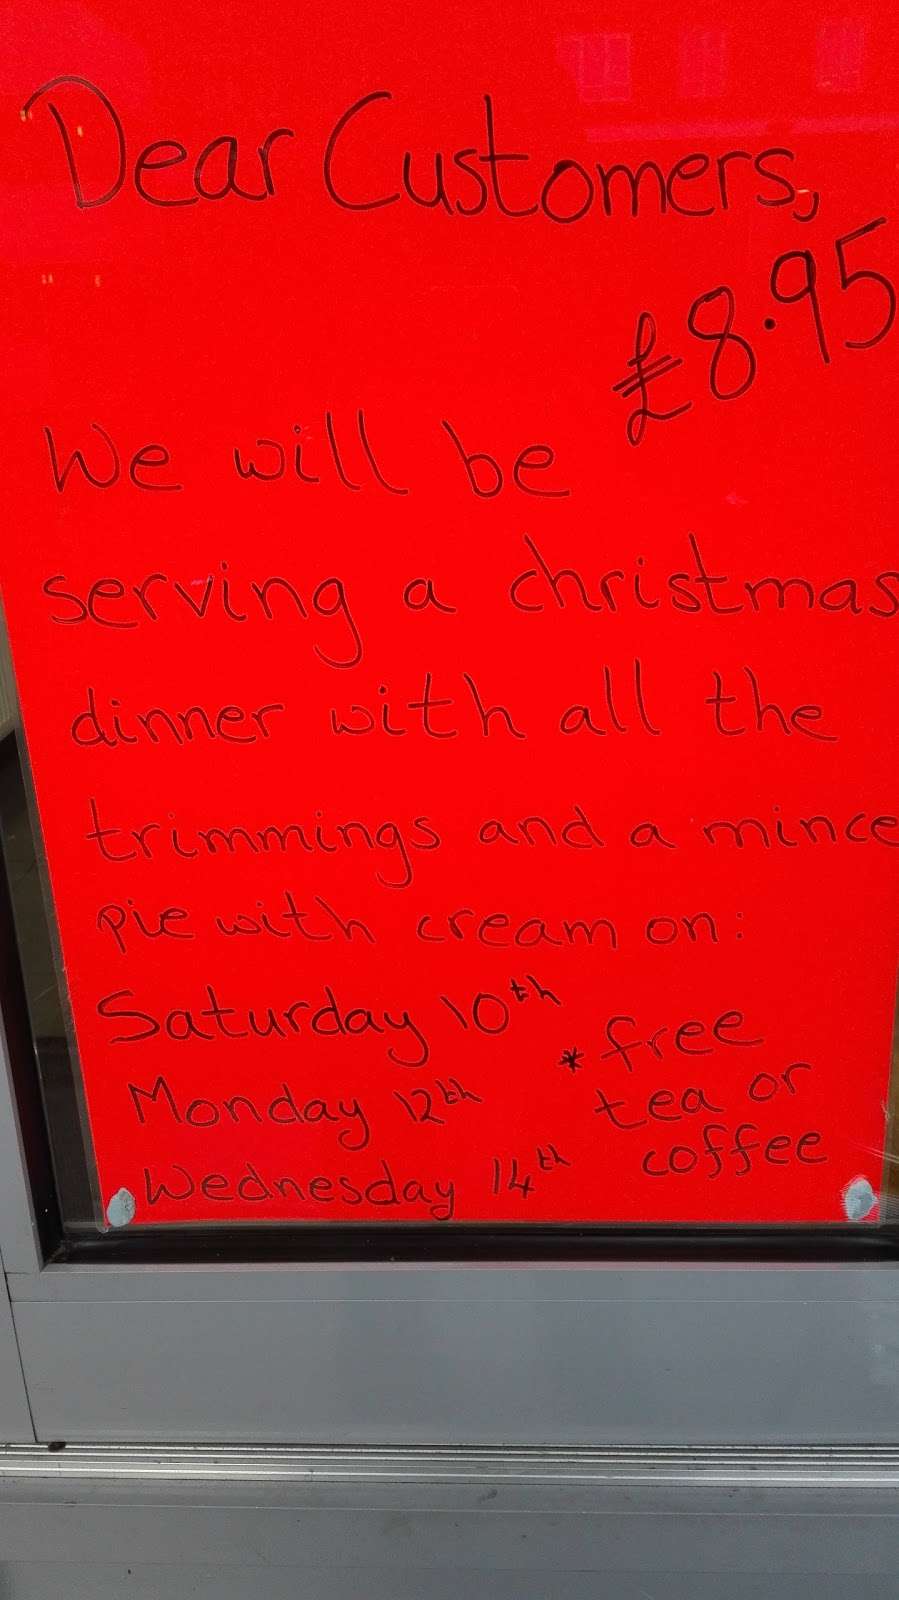 Dear Customers,
£8.95
We will be
serving a christmas
dinner with all the
trimmings and a mince
pie with cream on:
Saturday 10th
Monday 12th
Wednesday 14th
*free
tea or
coffee